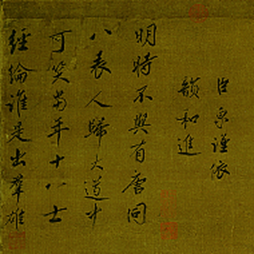 臣京謹依
韻和進
明時不與有唐同
八表人歸大道中
可笑當年十八士
經綸誰是出群雄